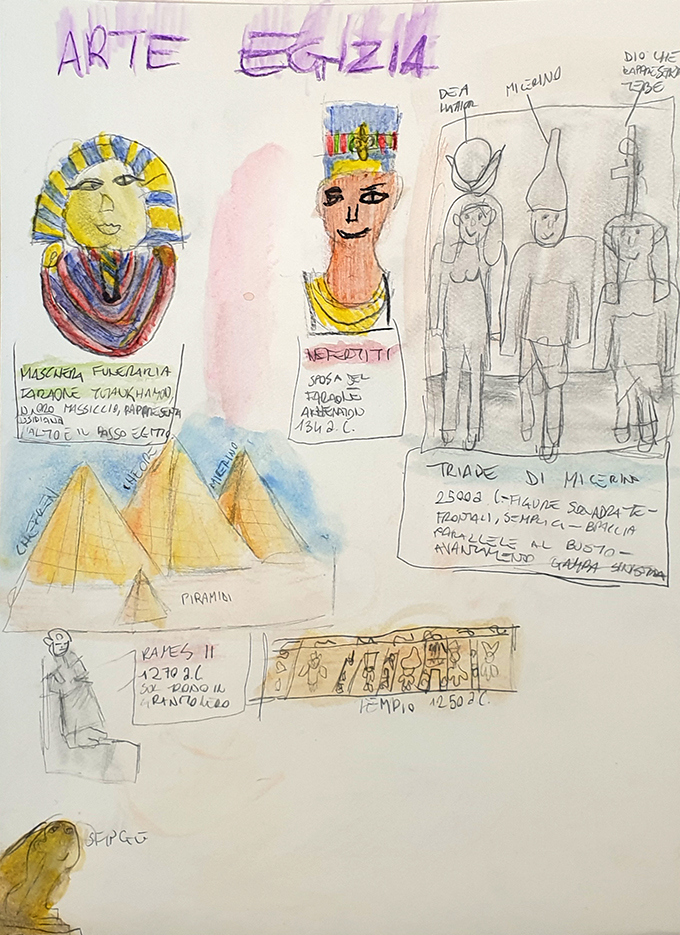 ARTE EGIZIA
DEA
HATHOR
MICERINO
DIO CHE
RAPPRESENTA
TEBE
MASCHERA FUNERARIA
FARAONE TUTANKHAMON,
D'ORO MASSICCIO, RAPPRESENTA
L'ALTO E IL BASSO EGITTO
NEFERTITI
SPOSA DEL
FARAONE
AKHENATON
134 a.C.
TRIADE DI MICERINO
2500 a.C - FIGURE SQUADRATE -
FRONTALI, SEMPLICI - BRACCIA
PARALLELE AL BUSTO -
AVANZAMENTO GAMBA SINISTRA
CHEFREN
CHEOPE
MICERINO
PIRAMIDI
RAMES II
1270 a.C
SUL TRONO IN
GRANITO NERO
TEMPIO 1250 a.C.
SFINGE